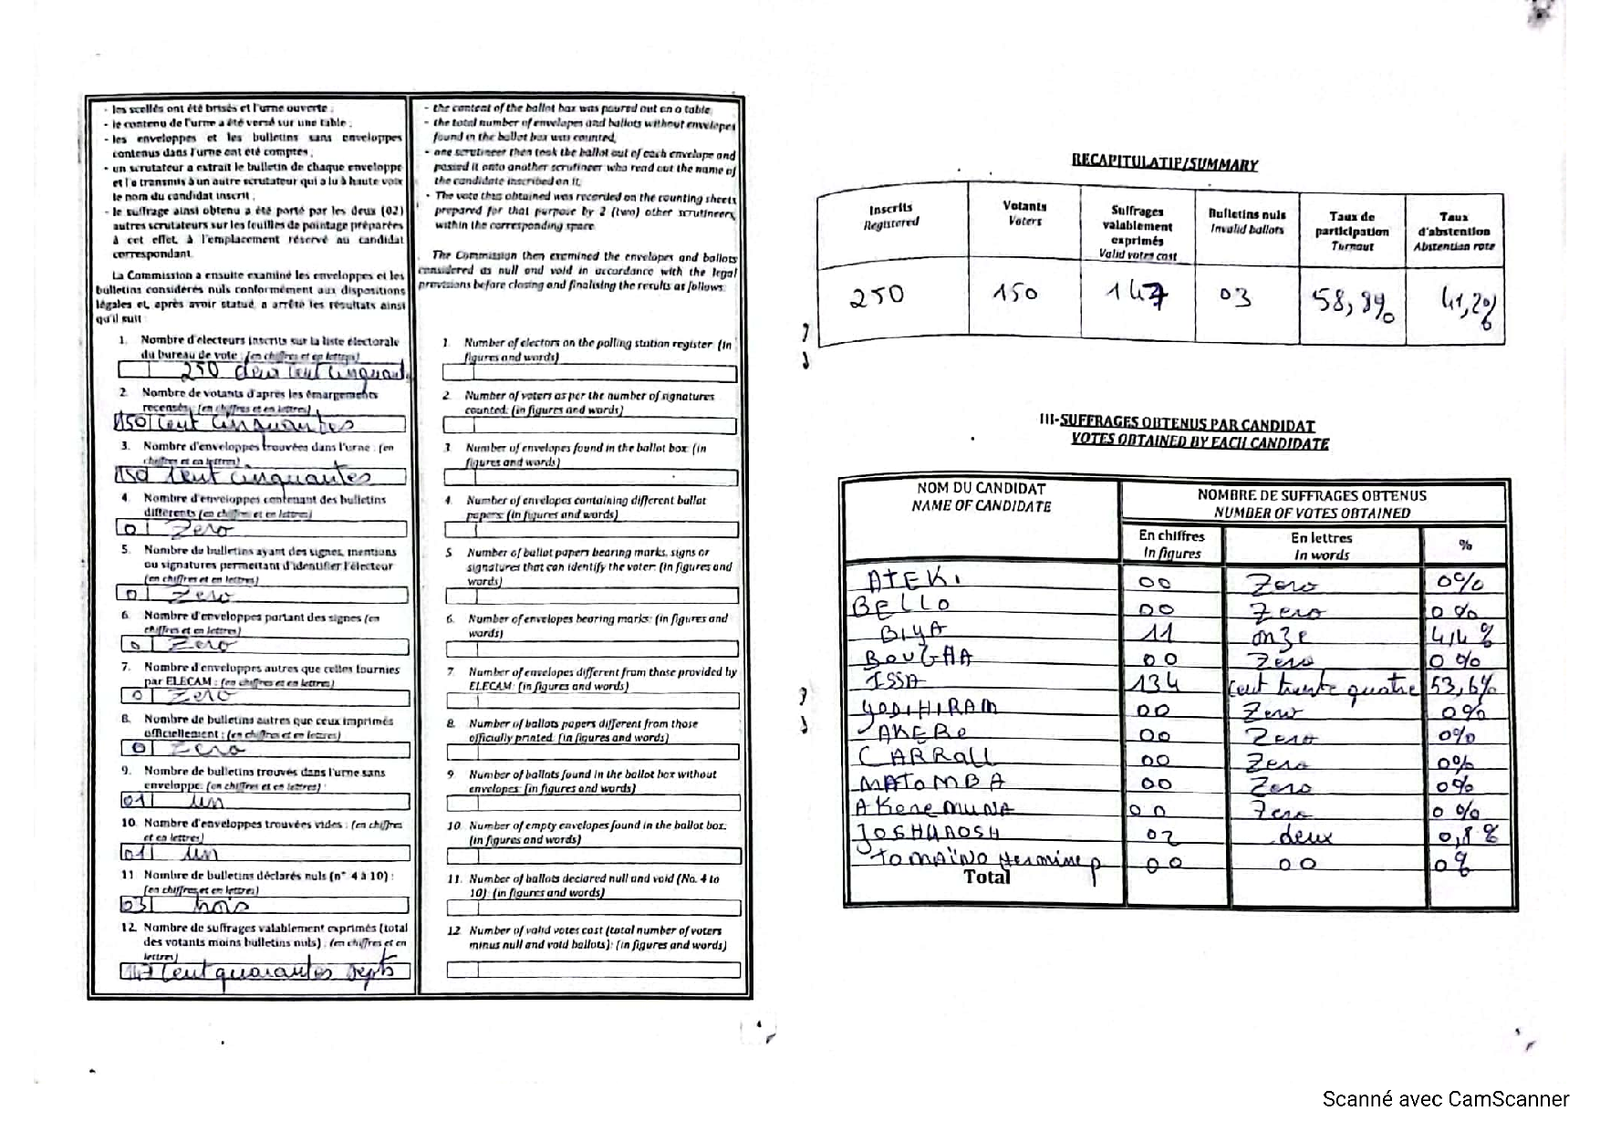 - les scellés ont été brisés et l'urne ouverte ;
- le contenu de l'urne a été versé sur une table ;
- les enveloppes et les bulletins sans enveloppes
contenus dans l'urne ont été comptés ;
- un scrutateur a extrait le bulletin de chaque enveloppe
et l'a transmis à un autre scrutateur qui a lu à haute voix
le nom du candidat inscrit ;
- le suffrage ainsi obtenu a été porté par les deux (02)
autres scrutateurs sur les feuilles de pointage préparées
à cet effet, à l'emplacement réservé au candidat
correspondant.
La Commission a ensuite examiné les enveloppes et les
bulletins considérés nuls conformément aux dispositions
légales et, après avoir statué, a arrêté les résultats ainsi
qu'il suit :
1. Nombre d'électeurs inscrits sur la liste électorale
du bureau de vote : (en chiffres et en lettres)
250 deux cent cinquant
2. Nombre de votants d'après les émargements
recensés : (en chiffres et en lettres)
150 cent cinquantes
3. Nombre d'enveloppes trouvées dans l'urne : (en
chiffres et en lettres)
150 cent cinquantes
4. Nombre d'enveloppes contenant des bulletins
différents (en chiffres et en lettres)
0 Zero
5. Nombre de bulletins ayant des signes, mentions
ou signatures permettant d'identifier l'électeur
(en chiffres et en lettres)
0 Zero
6. Nombre d'enveloppes portant des signes (en
chiffres et en lettres)
0 Zero
7. Nombre d'enveloppes autres que celles fournies
par ELECAM : (en chiffres et en lettres)
0 Zero
8. Nombre de bulletins autres que ceux imprimés
officiellement : (en chiffres et en lettres)
0 Zero
9. Nombre de bulletins trouvés dans l'urne sans
enveloppe: (en chiffres et en lettres)
01 un
10. Nombre d'enveloppes trouvées vides : (en chiffres
et en lettres)
01 un
11 Nombre de bulletins déclarés nuls (n° 4 à 10) :
(en chiffres et en lettres)
03 trois
12. Nombre de suffrages valablement exprimés (total
des votants moins bulletins nuls) : (en chiffres et en
lettres)
147 Cent quarantes septs
- the content of the ballot box was poured out on a table;
- the total number of envelopes and ballots without envelopes
found in the ballot box was counted;
- one scrutineer then took the ballot out of each envelope and
passed it onto another scrutineer who read out the name of
the candidate inscribed on it;
- The vote thus obtained was recorded on the counting sheets
prepared for that purpose by 2 (two) other scrutineers,
within the corresponding space.
The Commission then examined the envelopes and ballots
considered as null and void in accordance with the legal
provisions before closing and finalising the results as follows:
1. Number of electors on the polling station register: (in
figures and words)
2. Number of voters as per the number of signatures
counted: (in figures and words)
3. Number of envelopes found in the ballot box: (in
figures and words)
4. Number of envelopes containing different ballot
papers: (in figures and words)
5 Number of ballot papers bearing marks, signs or
signatures that can identify the voter: (in figures and
words)
6. Number of envelopes bearing marks: (in figures and
words)
7. Number of envelopes different from those provided by
ELECAM: (in figures and words)
8. Number of ballots papers different from those
officially printed: (in figures and words)
9 Number of ballots found in the ballot box without
envelopes: (in figures and words)
10 Number of empty envelopes found in the ballot box:
(in figures and words)
11. Number of ballots declared null and void (No. 4 to
10): (in figures and words)
12 Number of valid votes cost (total number of voters
minus null and void ballots): (in figures and words)
RECAPITULATIF/SUMMARY
Inscrits
Registered
Votants
Voters
Suffrages
valablement
exprimés
Valid votes cast
Bulletins nuls
Invalid ballots
Taux de
participation
Turnout
Taux
d'abstention
Abstention rate
250 150 147 03 58,8% 41,2%
III-SUFFRAGES OBTENUS PAR CANDIDAT
VOTES OBTAINED BY EACH CANDIDATE
NOM DU CANDIDAT
NAME OF CANDIDATE
NOMBRE DE SUFFRAGES OBTENUS
NUMBER OF VOTES OBTAINED
En chiffres
In figures
En lettres
In words
%
ATEKI 00 Zero 0%
BELLO 00 Zero 0%
BIYA 11 onze 4,4%
BOUGHA 00 Zero 0%
ISSA 134 Cent trente quatre 53,6%
YODIHIRAM 00 Zero 0%
AKERE 00 Zero 0%
CARRoll 00 Zero 0%
MATOMBA 00 Zero 0%
AKereMUNA 00 Zero 0%
JOSHUAOSH 02 deux 0,8%
TOMAÏNO Hermine p 00 00 0%
Total
Scanné avec CamScanner